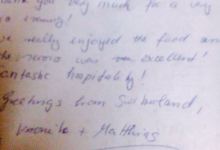 you very much for a very
evening!
we really enjoyed the food and
the was excellent!
Fantastic hospitality!
Greetings from Switzerland,
+ Matthias